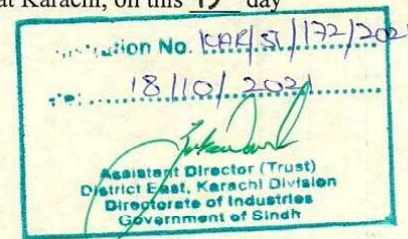 at Karachi, on this day
No. KAR/ST/172/202
18/10/2021
Assistant Director (Trust)
District East, Karachi Division
Directorate of Industries
Government of Sindh